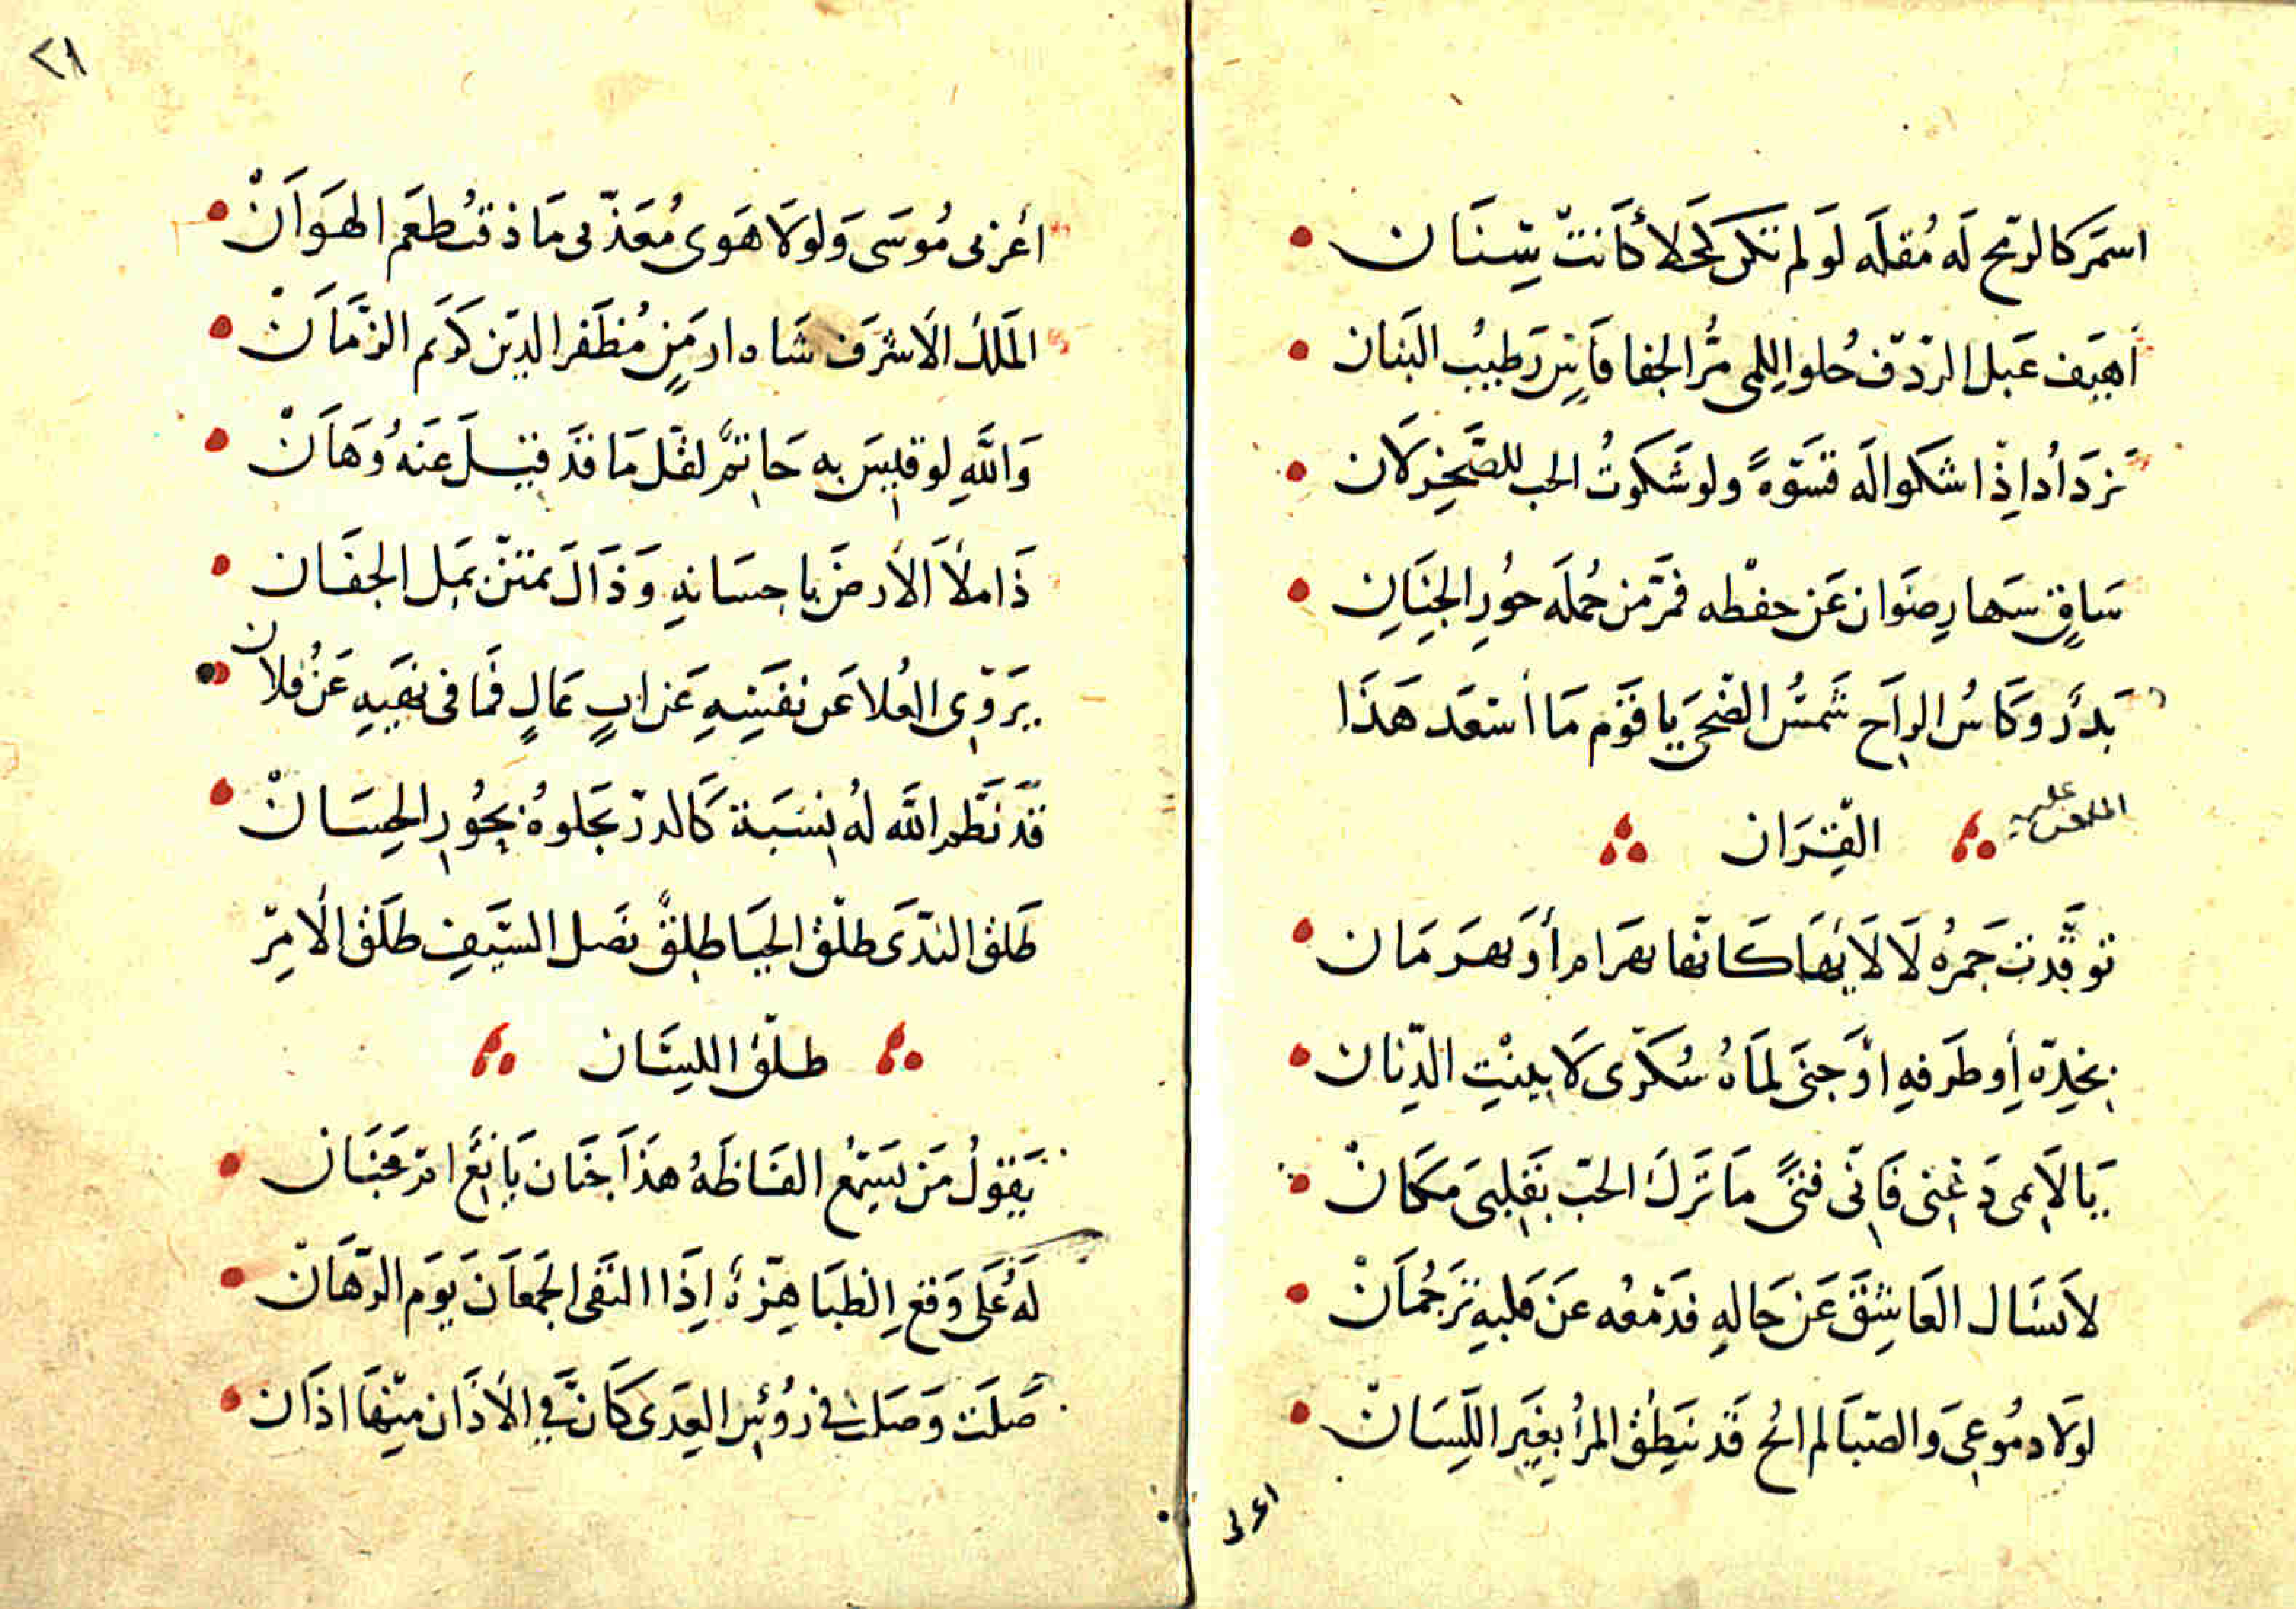 اسمَر كالرّمح لَه مُقلَه لَو لم تكن كَحلا كَانتْ سِنَان
أهيَف عَبل الرّدف حُلو اللمى مُرّ الجفا قَاسٍ رَطيبُ البَنان
نزدَادُ إذا شكوا لَه قَسْوَةً ولو شكوتُ الحب للصَّخر لَان
سَاقٍ سَها رِضوَان عَن حفظه فمَرّ من جُملَه حُورِ الجِنَانِ
بَدرٌ وكَاسُ الراح شَمسُ الضّحىَ يا قوَم مَا أسعَد هَذَا
القِرَان
توقّدت جَمرُه لَالَايهَا كانّها بهرَام أو بهرَمَان
بخدِّه أو طَرفهِ اوْ جنَى لمَاهُ سُكرَى لَا ببنْتِ الدِّنان
يَا لَايمى دَعْنى فَانّى فتىً مَا تَركَ الحبّ بقَلبىَ مكَانْ
لَا تسَال العَاشِقَ عَن حَالهِ فدَمْعُه عَن قلبهِ تَرجُمَانْ
لولَا دمُوعىَ والصّبَا لم ابُح قَد ينَطِقُ المرأ بغَيرِ اللِّسَانْ
اعزنى
٢١
اعزنى مُوسَى وَلولَا هَوى مُعَذّبى مَا ذقتُ طعَم الهَوَانْ
المَلك الَاشرَف شَاه ارمَنٍ مُظَفر الدّين كرَيم الزّمَانْ
وَاللّهِ لو قيِسَ به حَاتمٌ لقَل مَا قدَ قيَل عَنهُ وَهَانْ
ذَا ملَأ الَارضَ بإحسَانهِ وَذَاكَ يمتنّ بمَل الجفَان
يَروْى العُلا عَن نفسِهِ عَن ابٍ عَالٍ فمَا فى نَصّهِ عَنْ فُلان
قدْ نَظّم اللّه لهُ نِسبَة كَالدرّ تجَلوهُ نحُور الحِسَانْ
طَلق النّدَى طلْق الحَيَا طلِقٌ نصَل السّيَفِ طلَق الَامرْ
طلْق اللسَان
يَقولُ مَن يَسمَع الفَاظَهُ هذَا جنَان يَانعٌ امْ جنَان
لَهُ عَلى وَقع الظبَا هِزّهٌ إذَا التقَى الجَمعَان يوَم الرّهَانْ
صَلَت وَصَلت فى رُؤسِ العِدَى كَأنّ فى الَاذَان منهَا اذَان